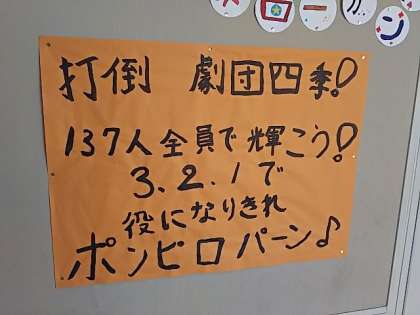 打倒 劇団四季!
137人全員で輝こう!
3.2.1で
役になりきれ
ポンピロパーン♪